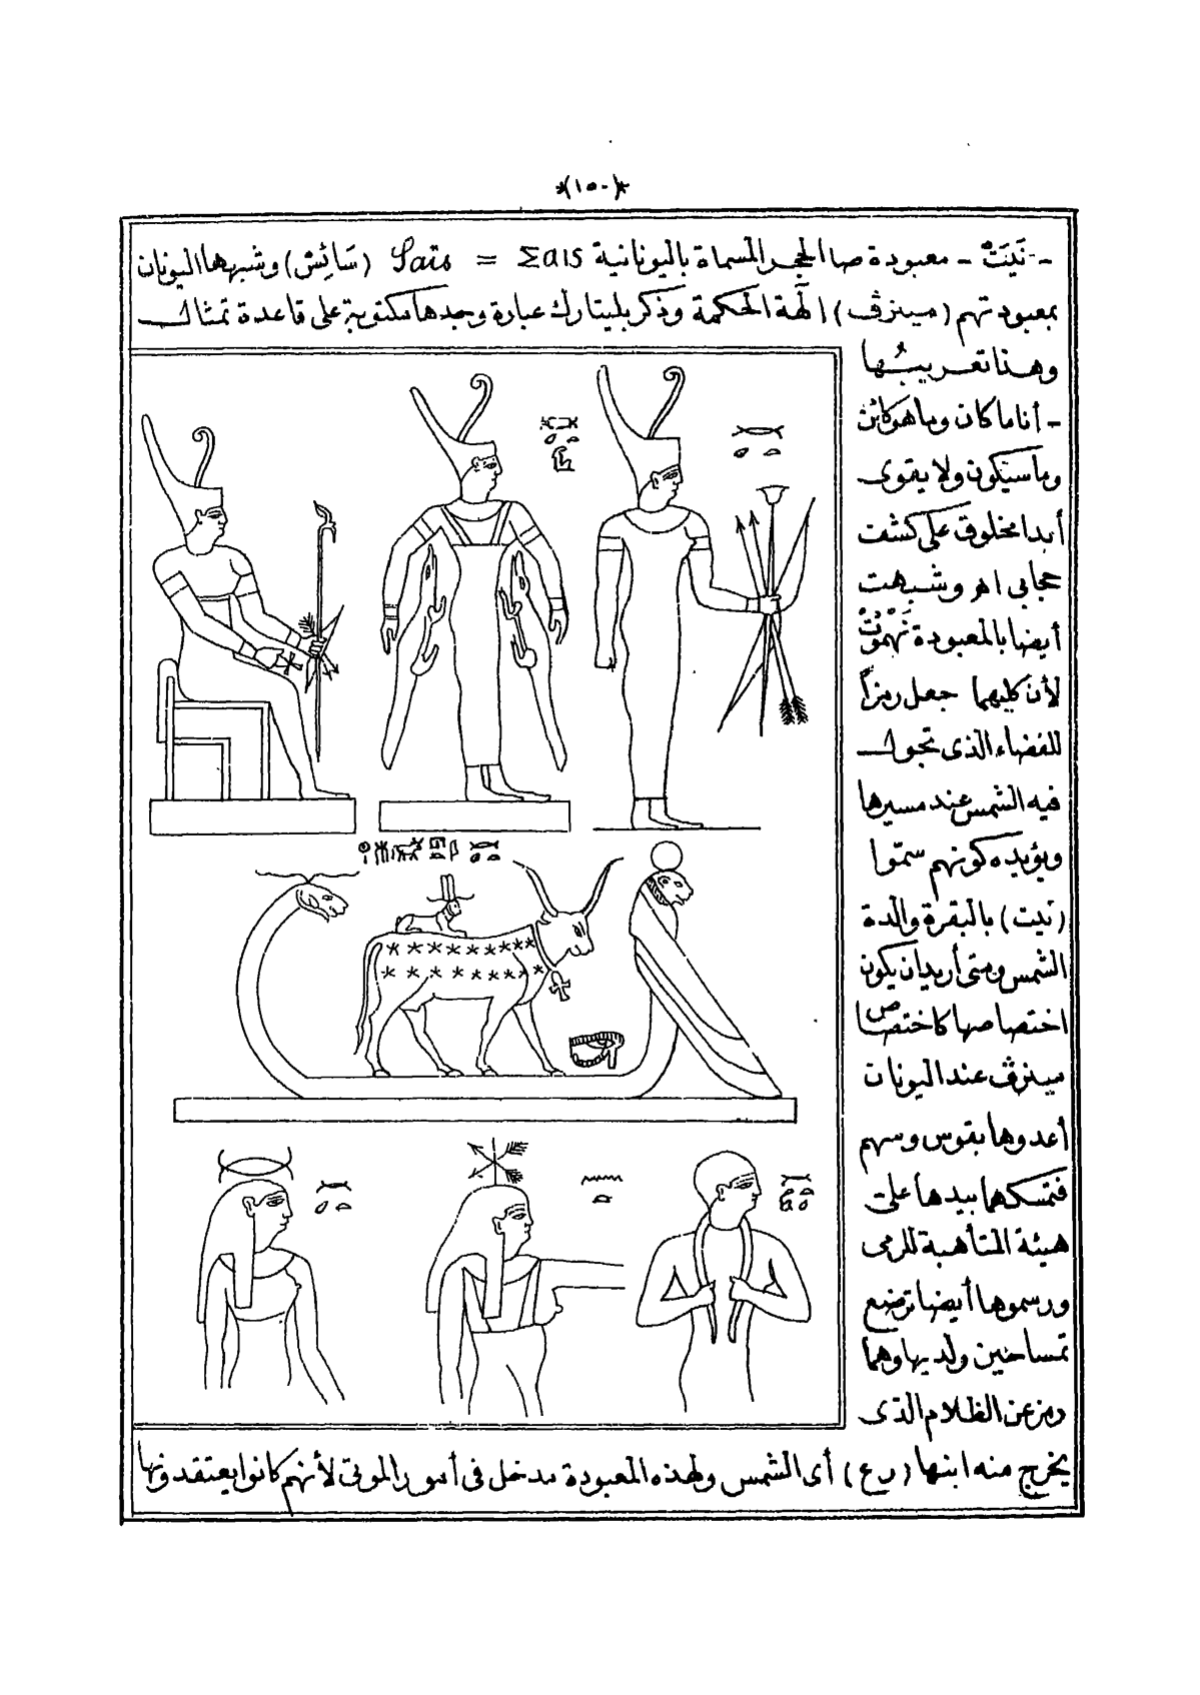 *(١٥٠)*
- نَيَتْ - معبودة صا الحجر المسماة باليونانية Sais = Σαις (سَائِسْ) وشبهها اليونان
بمعبودتهم (مينرڤ) الٓهة الحكمة وذكر بليتارك عبارة وجدها مكتوبة على قاعدة تمثال
وهذا تعريبُها
- أنا ما كان وما هو كائن
وما سيكون ولا يقوى
أبدا مخلوق على كشف
حجابى اهر وشبهت
أيضا بالمعبودة
لأن كليهما جعل رمزاً
للفضاء الذى تجول
فيه الشمس عند مسيرها
ويؤيده كونهم سمّوا
(نيت) بالبقرة والدة
الشمس ومتى أريد ان يكون
اختصاصها كاختصاص
مينرڤ عند اليونان
أعدوها بقوس وسهم
فتمسكهما بيدها على
هيئة المتأهبة للرمى
ورسموها أيضا ترضع
تمساحين ولديها وهما
رمز عن الظلام الذى
يخرج منه ابنها (رع) أى الشمس ولهذه المعبودة مدخل فى أمور الموتى لأنهم كانوا يعتقدونها